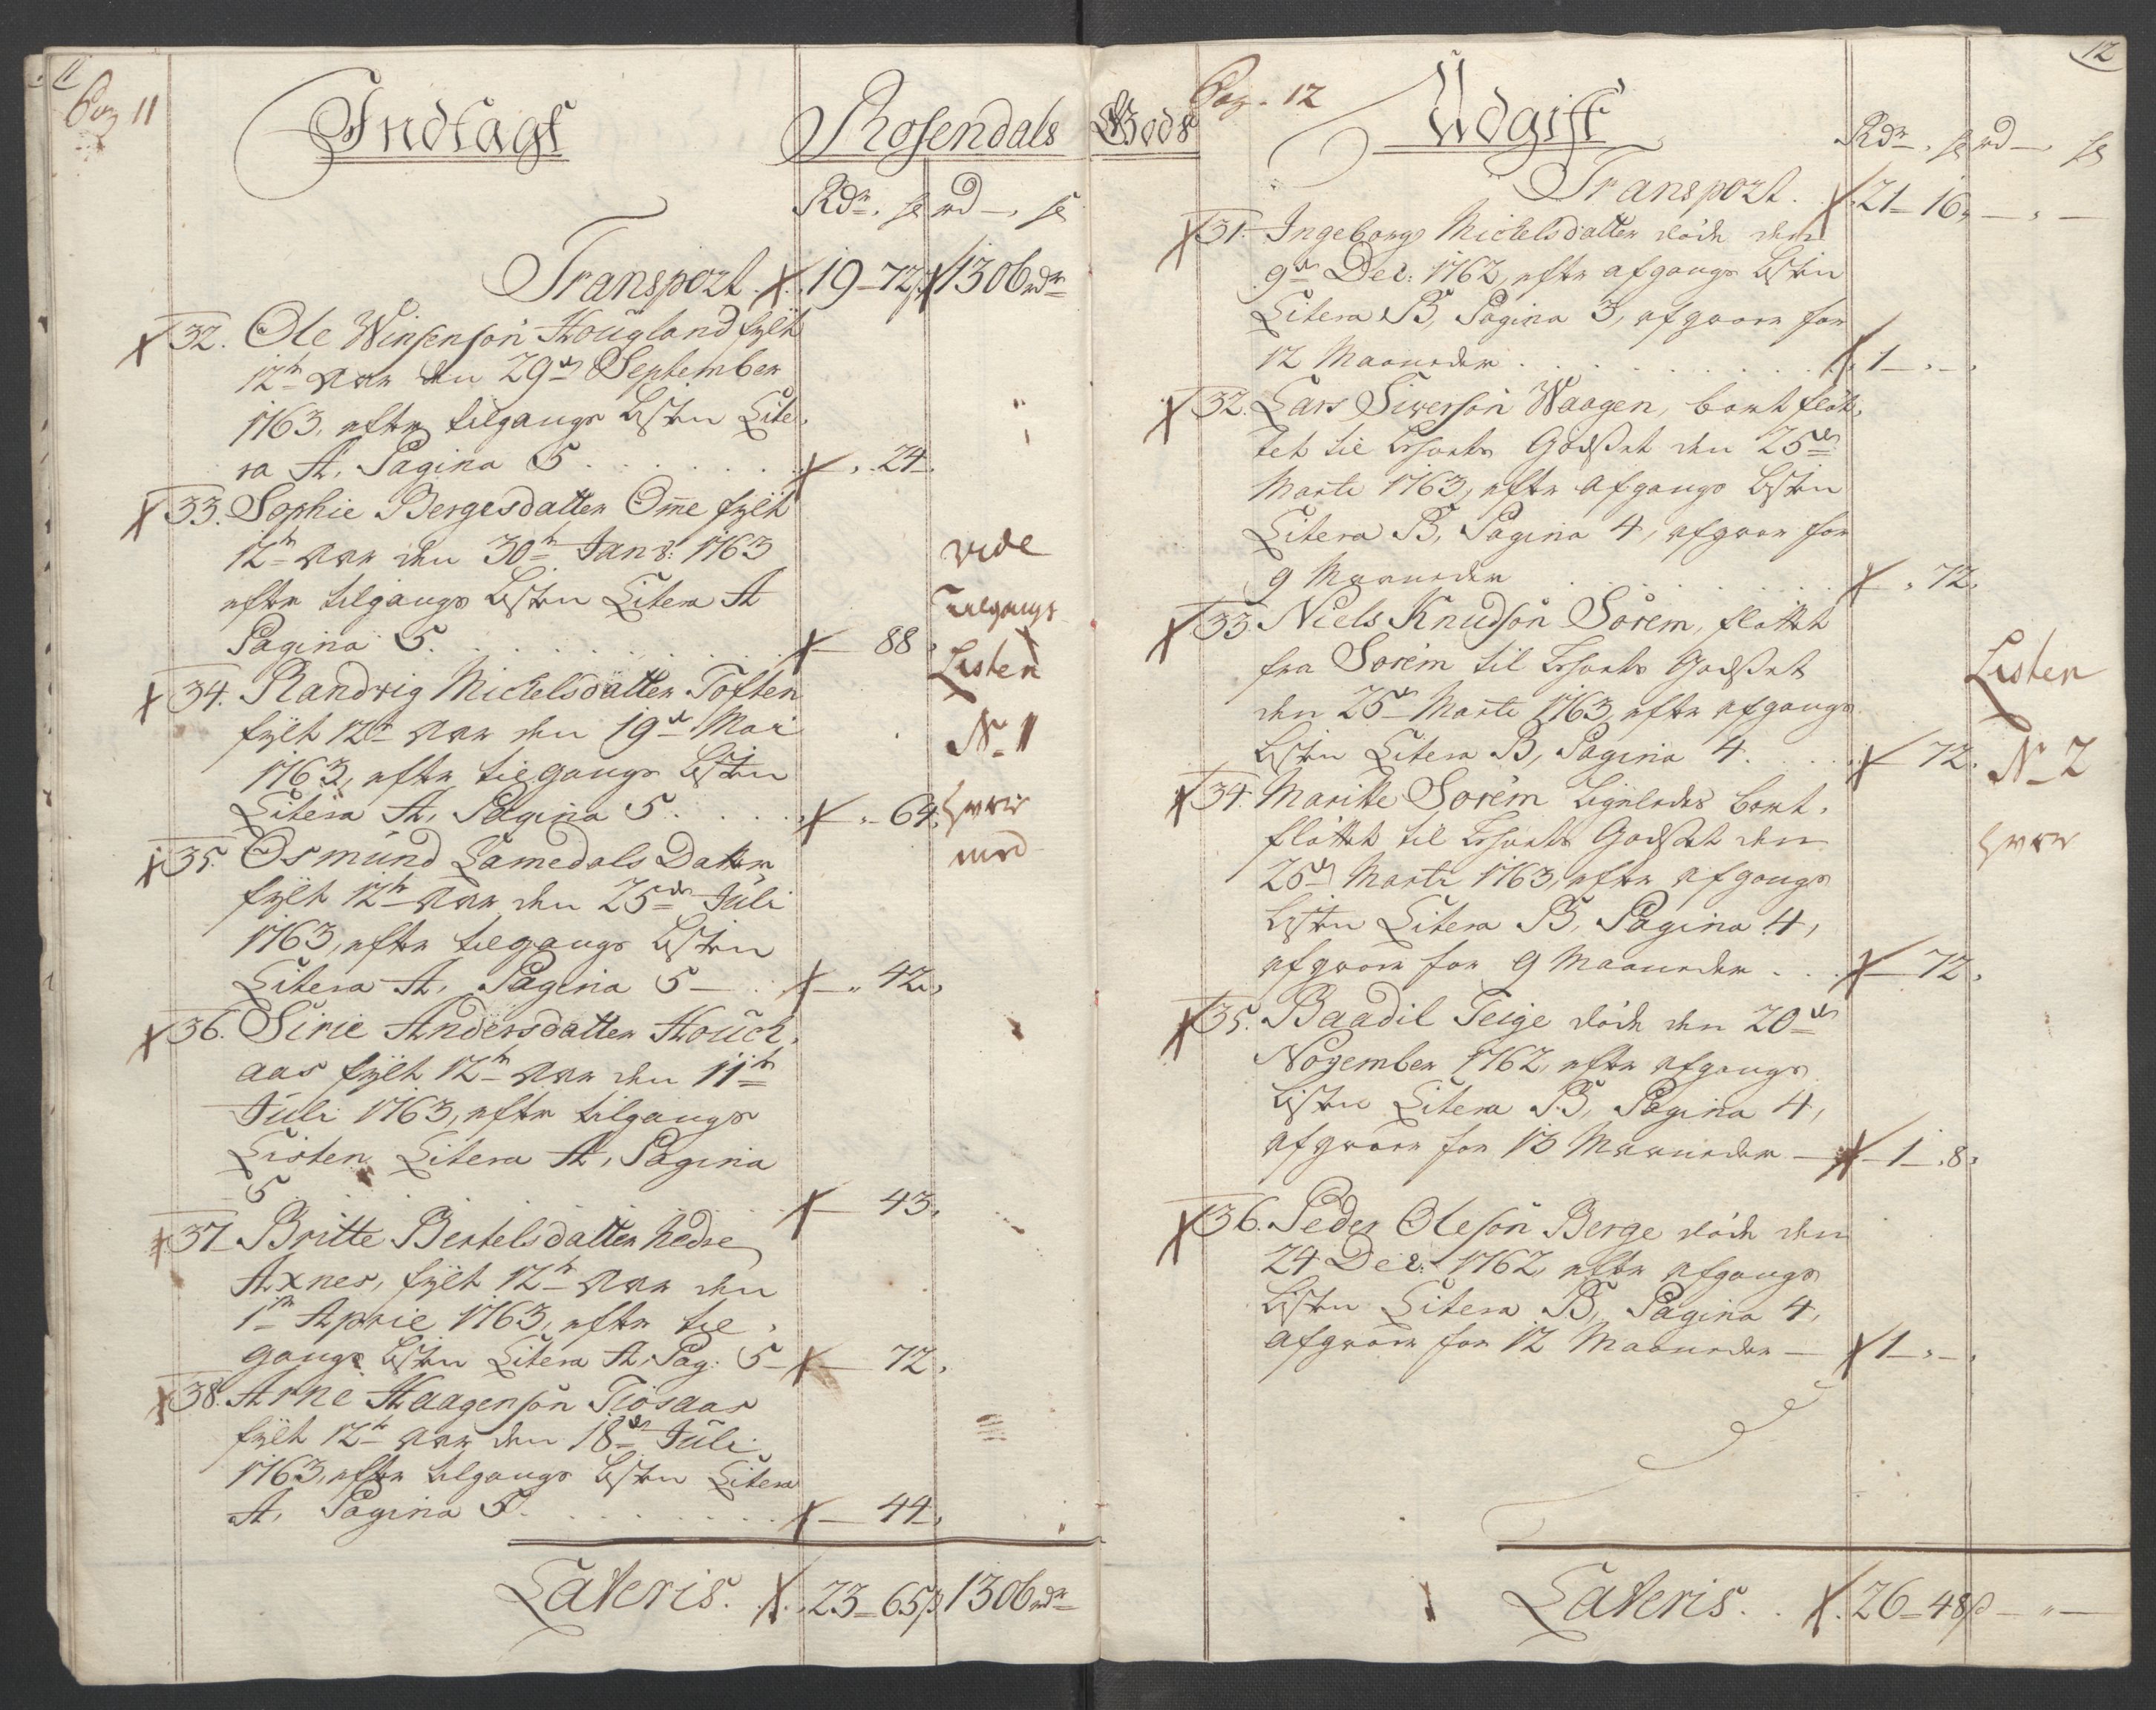 11
Pag 11
Indtægt
Rosendals
Rdr. ß rd ß
Transport. 19 - 72 ß 1306 rdr
32. Ole Winsensön Hougland fylt
12te Aar den 29de September
1763, efter tilgangs Listen Lite,
ra A, Pagina 5 . . . . . 24.
33. Sophie Bergesdatter Ome fylt
12te Aar den 30te Janv: 1763
efter tilgangs Listen Litera A
Pagina 5. . . . . . 88
34. Randvig Michelsdatter Toften
fylt 12te Aar den 19de Mai
1763, efter tilgangs Listen
Litera A, Pagina 5. . . . . 64.
35. Osmund Lamedals Datter
fylt 12te Aar den 25de Juli
1763, efter tilgangs Listen
Litera A, Pagina 5 - . . 42.
36. Sirie Andersdatter Houck,
aas fylt 12te Aar den 11te
Juli 1763, efter tilgangs
Listen Litera A, Pagina
5 . . . . . 43.
37 Britte Bertelsdatter Nedre
Axnes, fylt 12te Aar den
1te April 1763, efter til,
gangs Listen Litera A, Pag: 5 - 72.
38. Arne Haagensön Tiösaas
fylt 12te Aar den 18de Juli
1763, efter tilgangs Listen Litera
A, Pagina 5. . . . . 44.
vide
Tilgangs
Listen
No 1
her
med
Lateris. 23 - 65 ß 1306 rdr
12
Pag. 12
Gods
Udgift
Rdr. ß rd ß
Transport. 21 - 16 ß - " -
31. Ingeborg Michelsdatter döde den
9de Dec: 1762, efter afgangs Listen
Litera B, Pagina 3, afgaar for
12 Maaneder . . . . . 1 - " -
32. Lars Siversön Waagen, bort flöt,
tet til Godset den 25de
Marti 1763, efter Afgangs Listen
Litera B, Pagina 4, afgaar for
9 Maaneder . . . . . " 72.
33 Niels Knudsön Sörem, flöttet
fra Sörem til Godset
den 25de Marti 1763, efter afgangs
Listen Litera B, Pagina 4. . . . 72.
34. Maritte Sörem ligeledes bort,
flöttet til Godset den
25de Marti 1763, efter Afgangs
Listen Litera B, Pagina 4,
afgaar for 9 Maaneder . . . 72.
35. Baadil Teige döde den 20de
November 1762, efter Afgangs
Listen Litera B, Pagina 4,
afgaar for 13 Maaneder - 1 - 8.
36. Peder Olesön Berge döde den
24 Dec: 1762, efter Afgangs
Listen Litera B, Pagina 4,
afgaar for 12 Maaneder - 1 - " -
Listen
No 2
her
Lateris. . 26 - 48 ß - " -